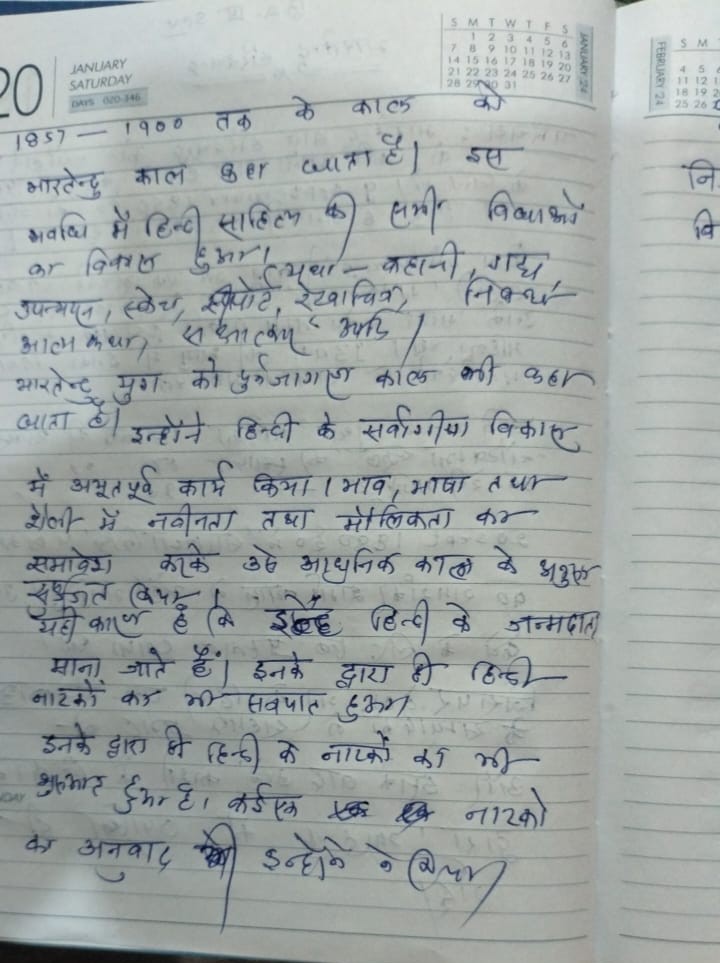 20
JANUARY
SATURDAY
DAYS 020-346
JANUARY '24
S M T W T F S
1 2 3 4 5 6
7 8 9 10 11 12 13
14 15 16 17 18 19 20
21 22 23 24 25 26 27
28 29 30 31
FEBRUARY 24
S M
4 5
11 12
18 19
25 26
1857 — 1900 तक के काल को
भारतेन्दु काल कहा जाता है। इस
अवधि में हिन्दी साहित्य की सभी विधाओं
का विकास हुआ।
(यथा — कहानी, गद्य,
उपन्यास, स्केच, रीपोर्ट, रेखाचित्र, निबंध
आत्म कथा, आदि /
भारतेन्दु युग को पुर्नजागरण काल भी कहा
जाता है। इन्होंने हिन्दी के सर्वांगीण विकास
में अभूतपूर्व कार्य किया। भाव, भाषा तथा
शैली में नवीनता तथा मौलिकता का
समावेश करके उसे आधुनिक काल के अनुरूप
किया।
यही कारण है कि हिन्दी के जन्मदाता
माना जाते हैं। इनके द्वारा ही हिन्दी
नाटकों का भी हुआ
इनके द्वारा ही हिन्दी के नाटकों का भी
शुरुआत हुआ है। कईएक नाटको
का अनुवाद भी इन्होंने ने किया।
नि
वि